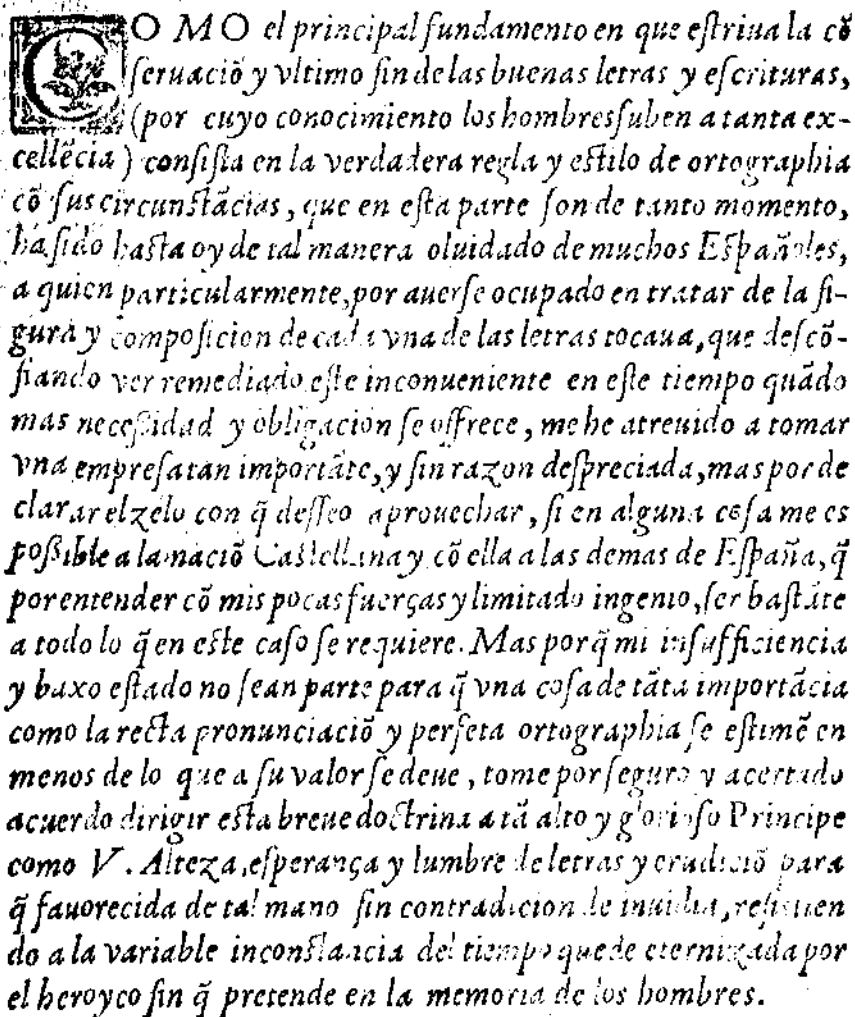 COMO el principal fundamento en que eſtriua la cõ
ſeruaciõ y vltimo fin de las buenas letras y eſcrituras,
(por cuyo conocimiento los hombres ſuben a tanta ex-
cellẽcia) conſiſta en la verdadera regla y eſtilo de ortographia
cõ ſus circunſtãcias, que en eſta parte ſon de tanto momento,
ha ſido haſta oy de tal manera oluidado de muchos Eſpañoles,
a quien particularmente, por auerſe ocupado en tratar de la fi-
gura y compoſicion de cada vna de las letras tocaua, que deſcõ-
fiando ver remediado eſte inconueniente en eſte tiempo quãdo
mas neceſsidad y obligacion ſe offrece, me he atreuido a tomar
vna empreſa tan importãte, y ſin razon deſpreciada, mas por de
clarar el zelo con q̃ deſſeo aprouechar, ſi en alguna coſa me es
poſsible a la naciõ Caſtellana y cõ ella a las demas de Eſpaña, q̃
por entender cõ mis pocas fuerças y limitado ingenio, ſer baſtãte
a todo lo q̃ en eſte caſo ſe requiere. Mas porq̃ mi inſufficiencia
y baxo eſtado no ſean parte para q̃ vna coſa de tãta importãcia
como la recta pronunciaciõ y perfeta ortographia ſe eſtimẽ en
menos de lo que a ſu valor ſe deue, tome por ſeguro y acertado
acuerdo dirigir eſta breue doctrina a tã alto y glorioſo Principe
como V. Alteza, eſperança y lumbre de letras y erudiciõ para
q̃ fauorecida de tal mano ſin contradicion de inuidia, reſiſtien
do a la variable inconſtancia del tiempo quede eternizada por
el heroyco fin q̃ pretende en la memoria de los hombres.